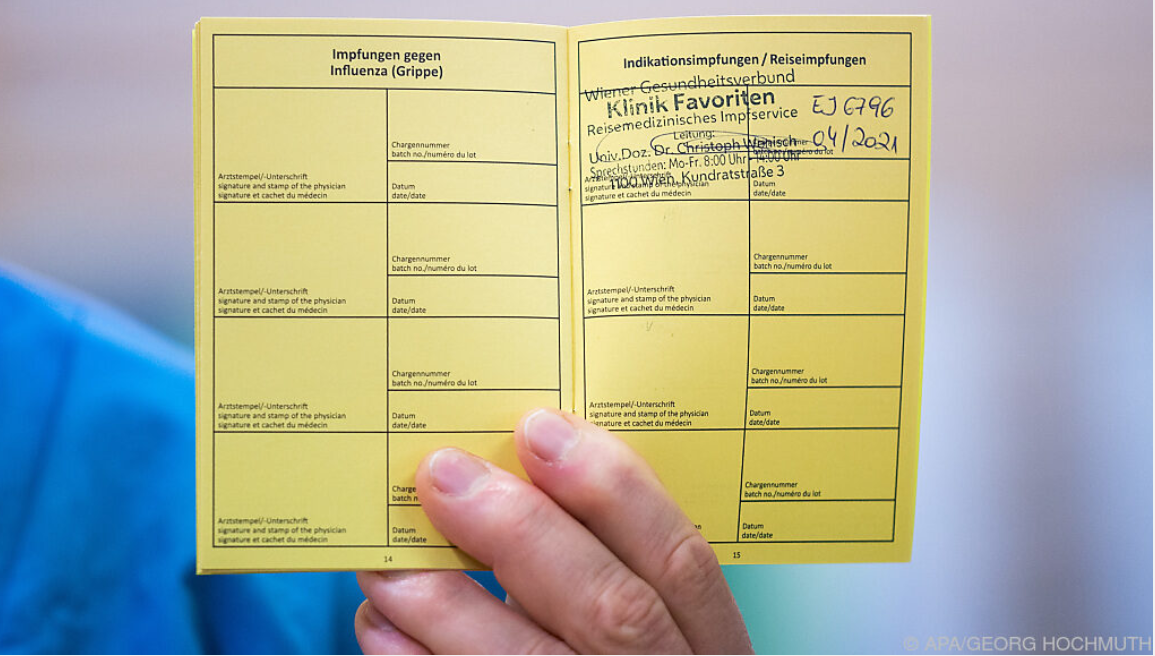 Impfungen gegen
Influenza (Grippe)
Chargennummer
batch no./numéro du lot
Arztstempel/-Unterschrift
signature and stamp of the physician
signature et cachet du médecin
Datum
date/date
Chargennummer
batch no./numéro du lot
Arztstempel/-Unterschrift
signature and stamp of the physician
signature et cachet du médecin
Datum
date/date
Chargennummer
batch no./numéro du lot
Arztstempel/-Unterschrift
signature and stamp of the physician
signature et cachet du médecin
Datum
date/date
Charge
batch n
Arztstempel/-Unterschrift
signature and stamp of the physician
signature et cachet du médecin
Datum
date/date
14
Indikationsimpfungen / Reiseimpfungen
Wiener Gesundheitsverbund
Klinik Favoriten
Reisemedizinisches Impfservice
Leitung:
Univ.Doz. Dr. Christoph Wenisch
Sprechstunden: Mo-Fr. 8:00 Uhr - 14:00 Uhr
1100 Wien, Kundratstraße 3
EJ 6796
04/2021
signature et cachet du médecin
Datum
date/date
Chargennummer
batch no./numéro du lot
Arztstempel/-Unterschrift
signature and stamp of the physician
signature et cachet du médecin
Datum
date/date
Chargennummer
batch no./numéro du lot
Arztstempel/-Unterschrift
signature and stamp of the physician
signature et cachet du médecin
Datum
date/date
Chargennummer
batch no./numéro du lot
Datum
date/date
15
© APA/GEORG HOCHMUTH